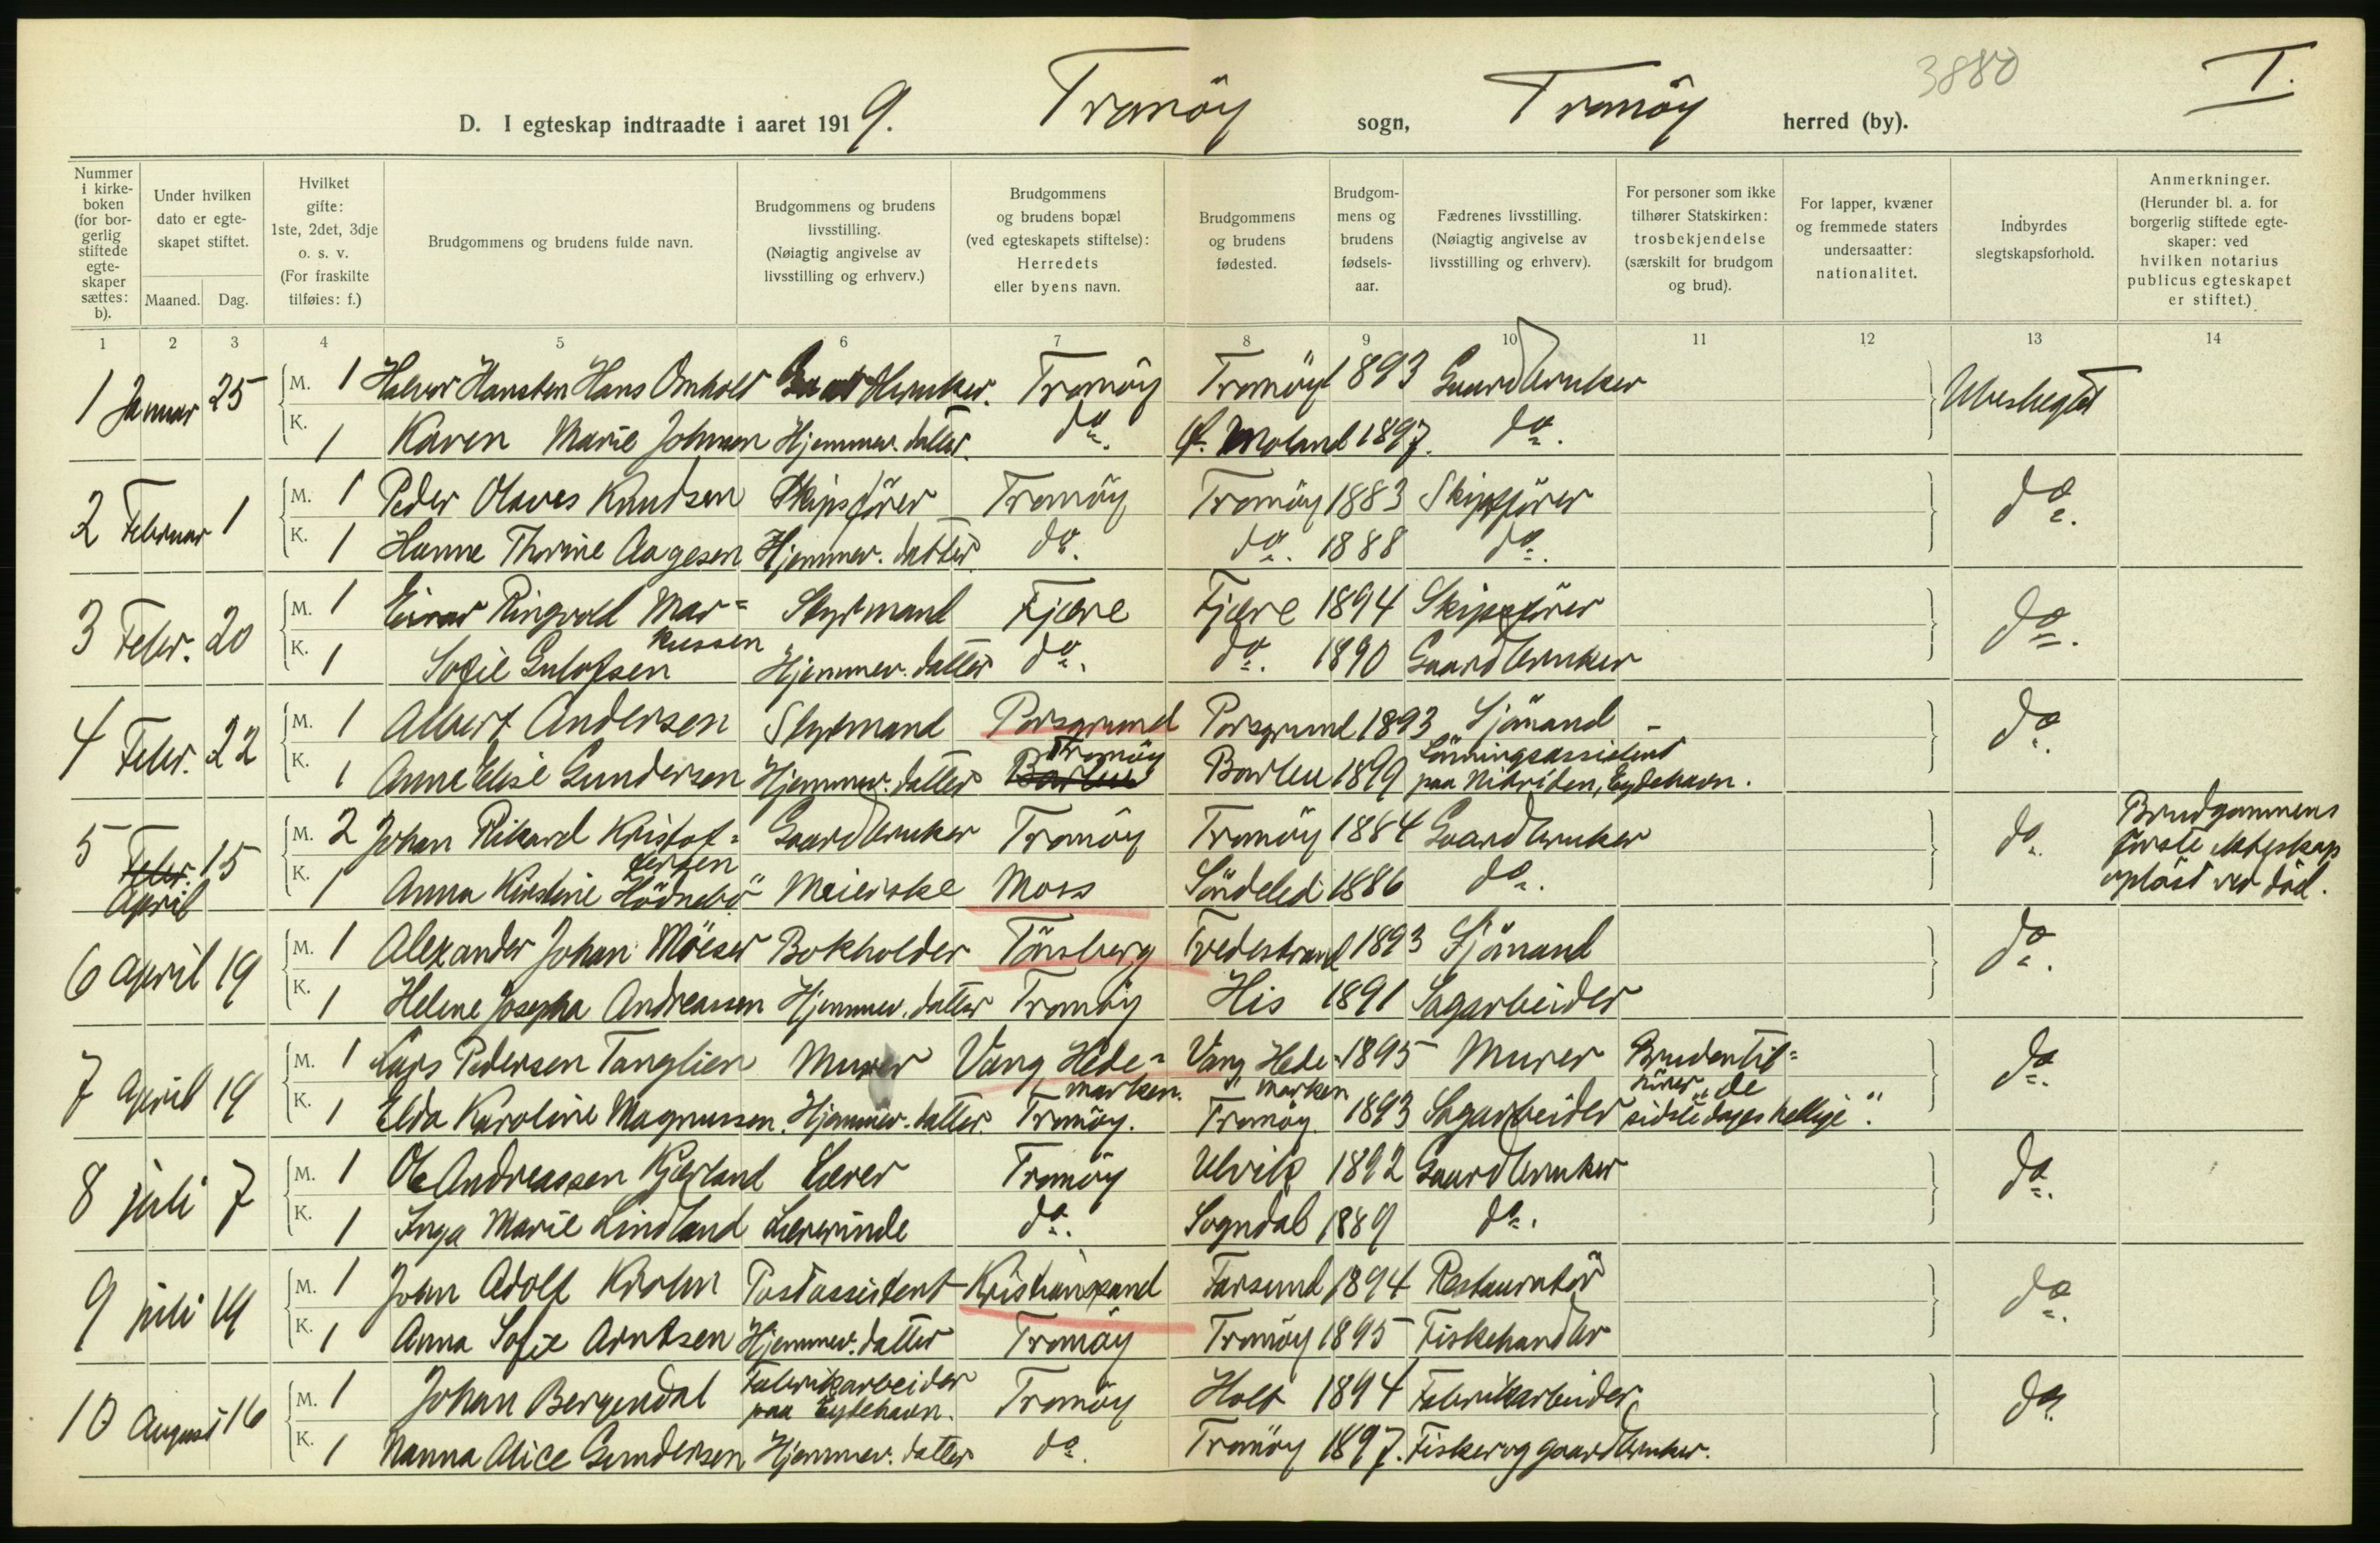 3880
I.
D. I egteskap indtraadte i aaret 1919. Tromöy sogn, Tromöy herred (by).
Nummer i kirkeboken (for borgerlig stiftede egteskaper sættes: b).
Under hvilken dato er egteskapet stiftet.
Maaned. Dag.
Hvilket gifte: 1ste, 2det, 3dje o. s. v. (For fraskilte tilføies: f.)
Brudgommens og brudens fulde navn.
Brudgommens og brudens livsstilling. (Nøiagtig angivelse av livsstilling og erhverv.)
Brudgommens og brudens bopæl (ved egteskapets stiftelse): Herredets eller byens navn.
Brudgommens og brudens fødested.
Brudgommens og brudens fødselsaar.
Fædrenes livsstilling. (Nøiagtig angivelse av livsstilling og erhverv).
For personer som ikke tilhører Statskirken: trosbekjendelse (særskilt for brudgom og brud).
For lapper, kvæner og fremmede staters undersaatter: nationalitet.
Indbyrdes slegtskapsforhold.
Anmerkninger. (Herunder bl. a. for borgerlig stiftede egteskaper: ved hvilken notarius publicus egteskapet er stiftet.)
1 2 3 4 5 6 7 8 9 10 11 12 13 14
1 Januar 25 M. 1 Halvor Hansten Hans Omholt Gaardbruker. Tromöy Tromöy 1893 Gaardbruker Ubeslegtet
K. 1 Karen Marie Johnsen Hjemmev. datter. do. Ø. Moland 1897. do.
2 Februar 1 M. 1 Peder Olaves Knudsen Skipsförer Tromöy Tromöy 1883 Skipsförer do.
K. 1 Hanne Thorine Aagesen Hjemmev. datter. do. do. 1888 do.
3 Febr. 20 M. 1 Einar Ringvold Mar= Styrmand Fjære Fjære 1894 Skipsförer do.
kussen
K. 1 Sofie Gulofsen Hjemmev. datter do. do. 1890 Gaardbruker
4 Febr. 22 M. 1 Albert Andersen Styrmand Porsgrund Porsgrund 1893 Sjömand do.
K. 1 Anna Elise Gundersen Hjemmev. datter Barbu Tromöy Barbu 1899 Lönningsassistent paa Nitriden, Eydehavn.
5 Febr. April 15 M. 2 Johan Rikard Kristof= Gaardbruker Tromöy Tromöy 1884 Gaardbruker do. Brudgommens
fersen förste ekteskap
K. 1 Anna Kirstine Hödnebö Meierske Moss Söndeled 1886 do. oplöst ved död.
6 April 19 M. 1 Alexander Johan Möeser Bokholder Tönsberg Tvedestrand 1893 Sjömand do.
K. 1 Helene Josepha Andreassen Hjemmev. datter Tromöy His 1891 Sagarbeider
7 April 19 M. 1 Lars Pedersen Tanglien Murer Vang Hede= Vang Hede= 1895 Murer Bruden til= do.
marken. marken hörer "de
K. 1 Elda Karoline Magnussen. Hjemmev. datter. Tromöy. Tromöy 1893 Sagarbeider sidste dages hellige".
8 juli 7 M. 1 Ole Andreassen Kjerland Lærer Tromöy Ulvik 1892 Gaardbruker do.
K. 1 Inga Marie Lindland Lærerinde do. Sogndal 1889 do.
9 juli 19 M. 1 John Adolf Krohn Postassistent Kristiansand Farsund 1894 Restauratör do.
K. 1 Anna Sofie Arntsen Hjemmev. datter Tromöy Tromöy 1895 Fiskehandler
10 August 16 M. 1 Johan Bergendal Fabrikarbeider paa Eydehavn. Tromöy Holt 1894 Fabrikarbeider do.
K. 1 Nanna Alice Gundersen Hjemmev. datter do. Tromöy 1897. Fisker og gaardbruker.